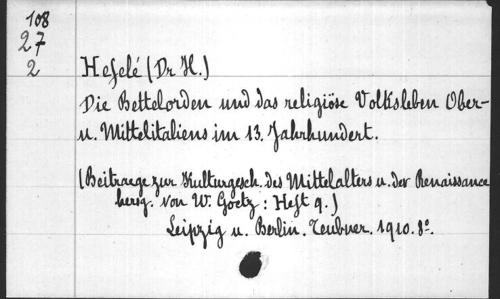 108
27
2
Hefelé (Dr H.)
Die Bettelorden und das religiöse Volksleben Ober-
u. Mittelitaliens im 13. Jahrhundert.
(Beitraege zur Kulturgesch. des Mittelalters u. der Renaissance
herсg. von W. Goetz : Heft 9.)
Leipzig u. Berlin. Teubner. 1910. 8º.